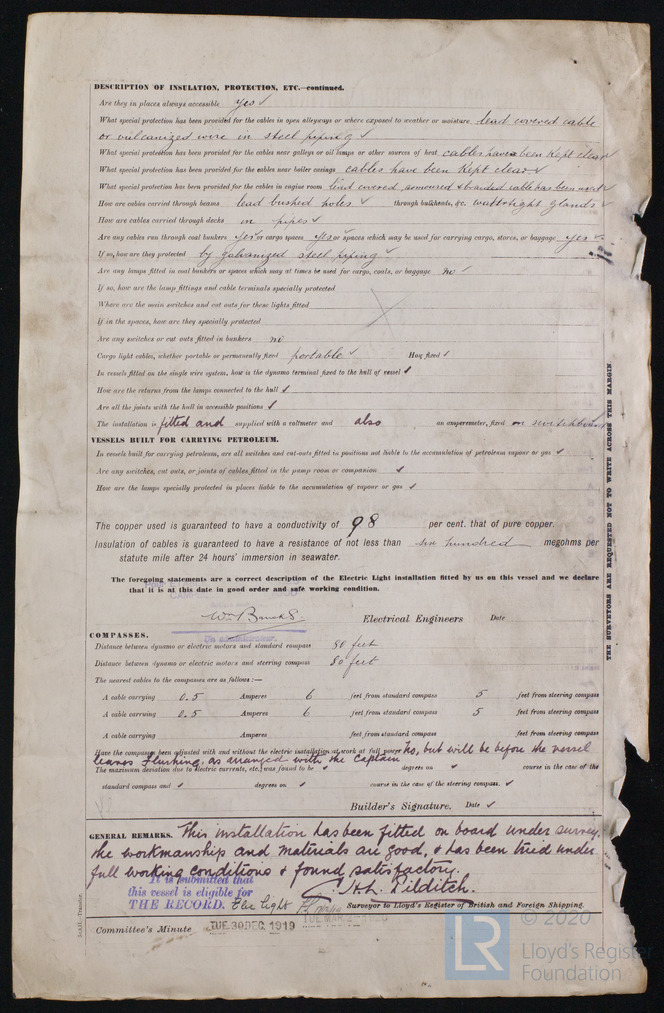 DESCRIPTION OF INSULATION, PROTECTION, ETC.—continued.
Are they in places always accessible yes ✓
What special protection has been provided for the cables in open alleyways or where exposed to weather or moisture lead covered cable
or vulcanized wire in steel piping ✓
What special protection has been provided for the cables near galleys or oil lamps or other sources of heat cables have been kept clear ✓
What special protection has been provided for the cables near boiler casings cables have been kept clear ✓
What special protection has been provided for the cables in engine room lead covered armoured & braided cable has been used ✓
How are cables carried through beams lead bushed holes ✓ through bulkheads, &c. watertight glands ✓
How are cables carried through decks in pipes ✓
Are any cables run through coal bunkers yes ✓ or cargo spaces yes ✓ or spaces which may be used for carrying cargo, stores, or baggage yes ✓
If so, how are they protected by galvanized steel piping ✓
Are any lamps fitted in coal bunkers or spaces which may at times be used for cargo, coals, or baggage no ✓
If so, how are the lamp fittings and cable terminals specially protected
Where are the main switches and cut outs for these lights fitted
If in the spaces, how are they specially protected
Are any switches or cut outs fitted in bunkers no
Cargo light cables, whether portable or permanently fixed portable ✓ How fixed ✓
In vessels fitted on the single wire system, how is the dynamo terminal fixed to the hull of vessel ✓
How are the returns from the lamps connected to the hull ✓
Are all the joints with the hull in accessible positions ✓
The installation is fitted and supplied with a voltmeter and also an amperemeter, fixed on switchboard
VESSELS BUILT FOR CARRYING PETROLEUM.
In vessels built for carrying petroleum, are all switches and cut-outs fitted in positions not liable to the accumulation of petroleum vapour or gas ✓
Are any switches, cut outs, or joints of cables fitted in the pump room or companion ✓
How are the lamps specially protected in places liable to the accumulation of vapour or gas ✓
The copper used is guaranteed to have a conductivity of 98 per cent. that of pure copper.
Insulation of cables is guaranteed to have a resistance of not less than six hundred megohms per
statute mile after 24 hours' immersion in seawater.
The foregoing statements are a correct description of the Electric Light installation fitted by us on this vessel and we declare
that it is at this date in good order and safe working condition.
Electrical Engineers Date
COMPASSES.
Distance between dynamo or electric motors and standard compass 90 feet
Distance between dynamo or electric motors and steering compass 80 feet
The nearest cables to the compasses are as follows:—
A cable carrying 0.5 Amperes 6 feet from standard compass 5 feet from steering compass
A cable carrying 0.5 Amperes 6 feet from standard compass 5 feet from steering compass
A cable carrying Amperes feet from standard compass feet from steering compass
Have the compasses been adjusted with and without the electric installation at work at full power No, but will be before the vessel
leaves Flushing, as arranged with the Captain
The maximum deviation due to electric currents, etc., was found to be ✓ degrees on ✓ course in the case of the
standard compass and ✓ degrees on ✓ course in the case of the steering compass. ✓
Builder's Signature. Date ✓
GENERAL REMARKS. This installation has been fitted on board under survey,
the workmanship and materials are good, & has been tried under
full working conditions & found satisfactory.
It is submitted that
this vessel is eligible for
THE RECORD. Elec light
H. Pilditch.
Surveyor to Lloyd's Register of British and Foreign Shipping.
Committee's Minute TUE.30 DEC. 1919
THE SURVEYORS ARE REQUESTED NOT TO WRITE ACROSS THIS MARGIN.
© 2020
LR
Lloyd's Register
Foundation